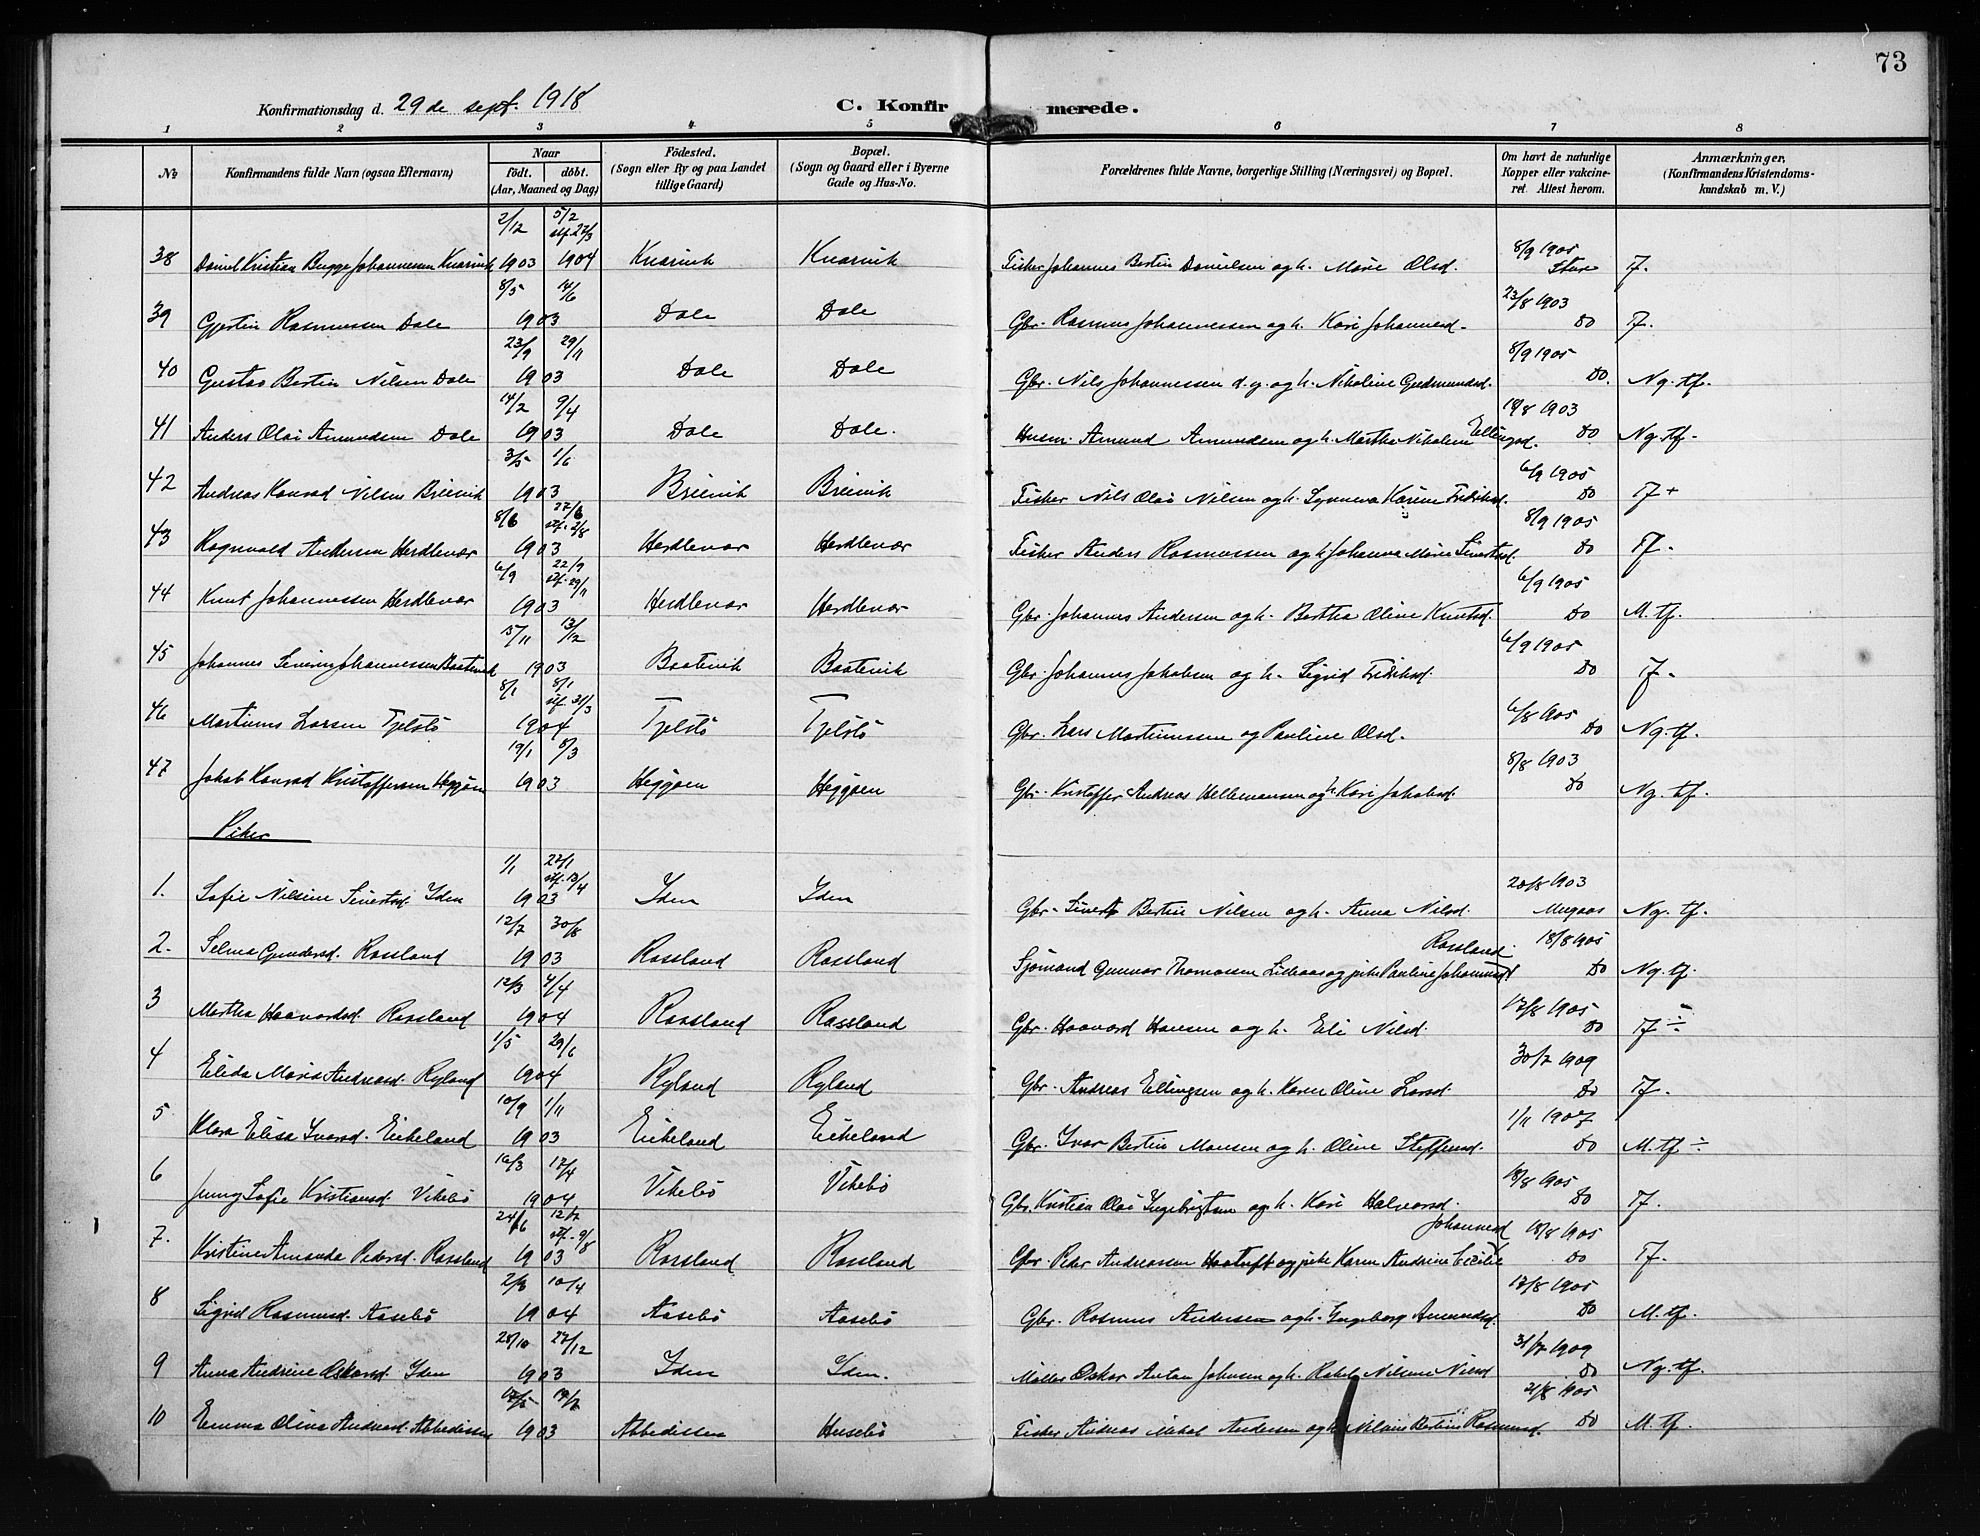 73
Konfirmationsdag d. 29de sept. 1918
C. Konfirmerede.
1 2 3 4 5 6 7 8
№ Konfirmandens fulde Navn (ogsaa Efternavn) Naar födt. döbt. (Aar, Maaned og Dag) Födested. (Sogn eller By og paa Landet tillige Gaard) Bopæl. (Sogn og Gaard eller i Byerne Gade og Hus-No. Forældrenes fulde Navne, borgerlige Stilling (Næringsvei) og Bopæl. Om havt de naturlige Kopper eller vakcineret. Attest herom. Anmærkninger. (Konfirmandens Kristendomskundskab m. V.)
2/12 5/2 stf. 27/3
38 Daniel Kristian Bugge Johannessen Knarvik 1903 1904 Knarvik Knarvik Fisker Johannes Bertin Danielsen og h. Marie Olsd. 8/9 1905 Sture Tf.
8/5 14/6
39 Gjertin Rasmussen Dale 1903 Dale Dale Gbr. Rasmus Johannessen og h. Kari Johannesd. 23/8 1903 do Tf.
23/9 29/11
40 Gustav Bertin Nilsen Dale 1903 Dale Dale Gbr. Nils Johannessen d.y. og h. Nikoline Gudmundsd. 8/9 1905 do. Ng. tf.
14/2 9/4
41 Anders Olai Amundsen Dale 1903 Dale Dale. Husm. Amund Amundsen og h. Martha Nikoline Ellingsd. 18/8 1903 do Ng. tf.
3/5 1/6
42 Andreas Konrad Nilsen Breivik 1903 Breivik Breivik Fisker Nils Olai Nilsen og h. Synneva Karine Fredriksd. 6/9 1905 do Tf +
8/6 27/6 stf. 2/8
43 Ragnvald Andersen Herdlevær 1903 Herdlevær Herdlevær Fisker Anders Rasmussen og h. Johanna Marie Sivertsd. 8/9 1905 do Tf.
6/9 22/9 stf. 29/11
44 Knut Johannessen Herdlevær 1903 Herdlevær Herdlevær Gbr. Johannes Andersen og h. Bertha Oline Knutsd. 6/9 1905 do M. tf.
15/11 13/12
45 Johannes Severin Johannessen Baatevik 1903 Baatevik Baatevik Gbr. Johannes Jakobsen og h. Sigrid Fredriksd. 6/9 1905 do Tf.
8/1 8/1 stf. 31/3
46 Martinus Larsen Tjelstö 1904 Tjelstö Tjelstö Gbr. Lars Martinussen og Pauline Olsd. 6/8 1905 do Ng. tf.
19/1 5/3
47 Jakob Konrad Kristoffersen Heggöen 1903 Heggöen Heggöen Gbr. Kristoffer Andreas Hellemansen og h. Kari Jakobsd. 8/8 1903 do Ng. tf.
Piker
1/1 27/1 stf. 13/4
1. Sofie Nilsine Sivertsd. Iden 1903 Iden Iden Gbr. Sivert Bertin Nilsen og h. Anna Nilsd. 20/8 1903 Mugaas Ng. tf.
12/7 30/8
2. Selma Gundersd. Rossland 1903 Rossland Rossland Sjömand Gunnar Thomassen Lilleaas og pike Pauline Johannesd. Rossland 18/8 1905 do Ng. tf.
12/3 4/4
3 Martha Haavardsd. Rossland 1904 Rossland Rossland Gbr. Haavard Hansen og h. Eli Nilsd. 17/8 1905 do Tf ÷
1/5 29/6
4 Elida Maria Andreasd. Ryland 1904 Ryland Ryland Gbr. Andreas Ellingsen og h. Karen Oline Larsd. 30/7 1909 do Tf.
10/9 1/11
5 Klara Elisa Ivarsd. Eikeland 1903 Eikeland Eikeland Gbr. Ivar Bertin Monsen og h. Oline Steffensd. 1/11 1907 do M. tf ÷
16/3 17/4
6 Jenny Sofie Kristiansd. Vikebö 1904 Vikebö Vikebö Gbr. Kristian Olai Ingebrigtsen og h. Kari Halvorsd. 18/8 1905 do Tf.
24/6 12/7 stf. 9/8
7. Kristine Amanda Pedersd. Rossland 1903 Rossland Rossland Gbr. Peder Andreassen Haatuft og pike Karen Andrine Cecilie Johannesd 18/8 1905 do Tf.
2/3 10/4
8 Sigrid Rasmusd. Aasebö 1904 Aasebö Aasebö Gbr. Rasmus Andersen og h. Ingeborg Amundsd. 17/8 1905 do M. tf.
28/10 27/12
9 Anna Andrine Oskarsd. Iden 1903 Iden Iden. Möller Oskar Anton Johnsen og h. Rakel Nilsine Nilsd 31/7 1909 do Ng. tf.
10 Emma Olina Andreasd. Abbedissen 1903 Abbedissen Husebö Fisker Andreas Mikal Andersen og h. Bertine Rasmusd. 21/8 1905 do M. tf.